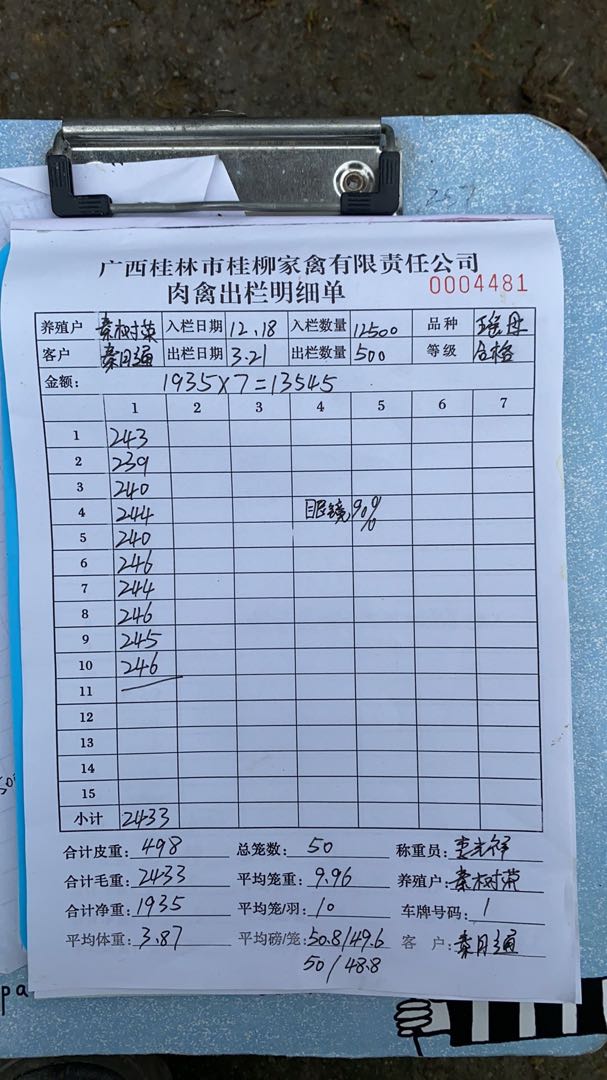 257
广西桂林市桂柳家禽有限责任公司
肉禽出栏明细单 0004481
养殖户 秦树荣 入栏日期 12.18 入栏数量 12500 品种 瑶丹
客户 秦月通 出栏日期 3.21 出栏数量 500 等级 合格
金额: 1935×7=13545
1 2 3 4 5 6 7
1 243
2 239
3 240
4 244 眼镜90%
5 240
6 246
7 244
8 246
9 245
10 246
11
12
13
14
15
小计 2433
合计皮重: 498 总笼数: 50 称重员:
合计毛重: 2433 平均笼重: 9.96 养殖户: 秦树荣
合计净重: 1935 平均笼/羽: 10 车牌号码: 1
平均体重: 3.87 平均磅/笼: 50.8/49.6 客 户: 秦月通
50/48.8
pa